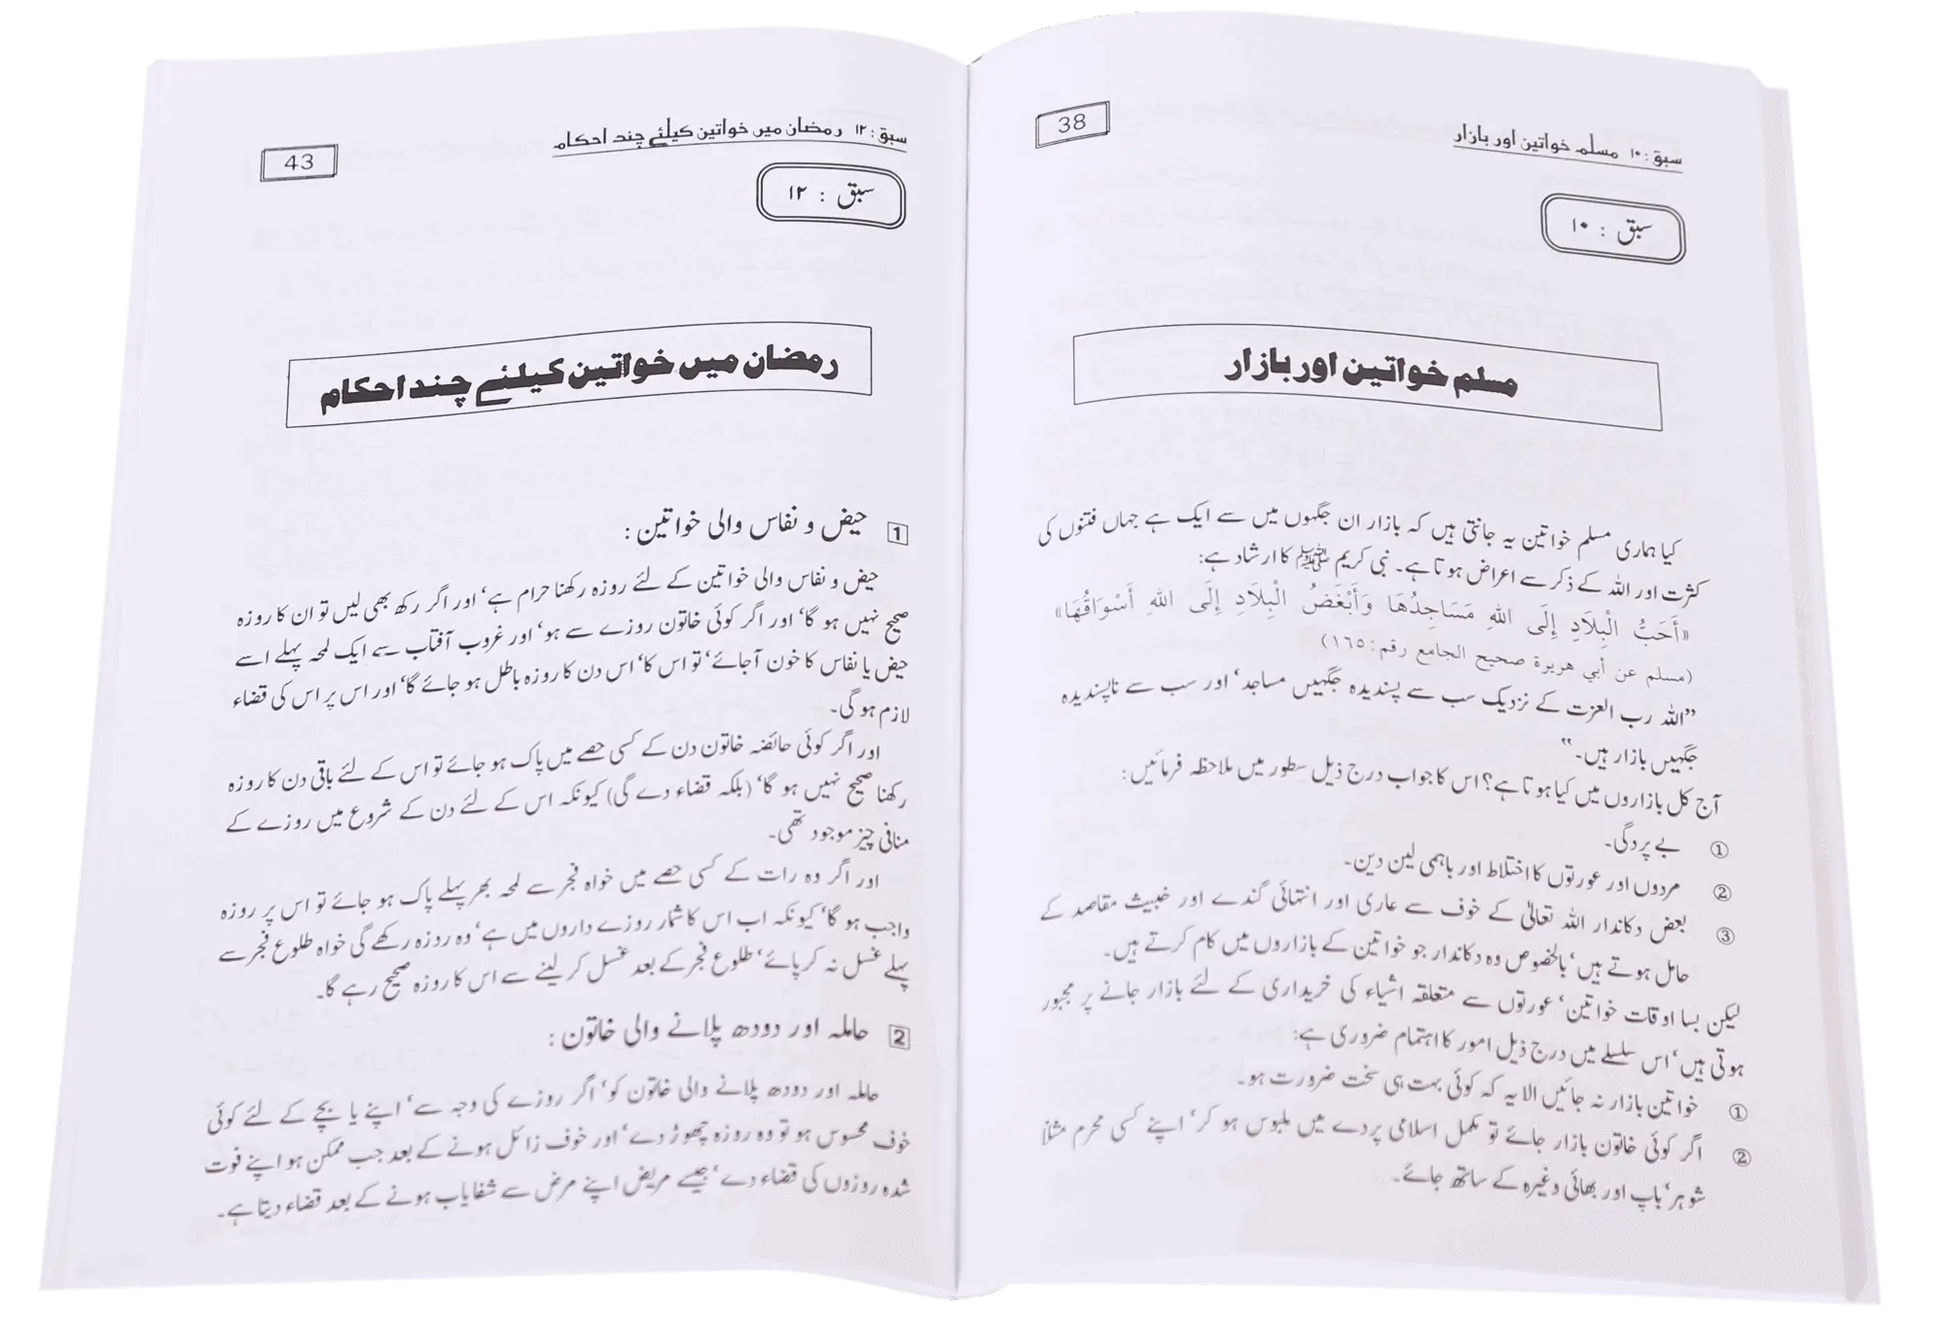 38
سبق: ۱۰ مسلم خواتین اور بازار
سبق : ۱۰
مسلم خواتین اور بازار
کیا ہماری مسلم خواتین یہ جانتی ہیں کہ بازار ان جگہوں میں سے ایک ہے جہاں فتنوں کی
کثرت اور اللہ کے ذکر سے اعراض ہوتا ہے۔ نبی کریم ﷺ کا ارشاد ہے:
«أَحَبُّ الْبِلَادِ إِلَى اللهِ مَسَاجِدُهَا وَأَبْغَضُ الْبِلَادِ إِلَى اللهِ أَسْوَاقُهَا»
(مسلم عن أبي هريرة صحيح الجامع رقم: ١٦٥)
”اللہ رب العزت کے نزدیک سب سے پسندیدہ جگہیں مساجد‘ اور سب سے ناپسندیدہ
جگہیں بازار ہیں۔“
آج کل بازاروں میں کیا ہوتا ہے؟ اس کا جواب درج ذیل سطور میں ملاحظہ فرمائیں:
① بے پردگی۔
② مردوں اور عورتوں کا اختلاط اور باہمی لین دین۔
③ بعض دکاندار اللہ تعالیٰ کے خوف سے عاری اور انتہائی گندے اور خبیث مقاصد کے
حامل ہوتے ہیں‘ بالخصوص وہ دکاندار جو خواتین کے بازاروں میں کام کرتے ہیں۔
لیکن بسا اوقات خواتین‘ عورتوں سے متعلقہ اشیاء کی خریداری کے لئے بازار جانے پر مجبور
ہوتی ہیں‘ اس سلسلے میں درج ذیل امور کا اہتمام ضروری ہے:
① خواتین بازار نہ جائیں الا یہ کہ کوئی بہت ہی سخت ضرورت ہو۔
② اگر کوئی خاتون بازار جائے تو مکمل اسلامی پردے میں ملبوس ہو کر‘ اپنے کسی محرم مثلاً
شوہر‘ باپ اور بھائی وغیرہ کے ساتھ جائے۔
43
سبق: ۱۲ رمضان میں خواتین کیلئے چند احکام
سبق : ۱۲
رمضان میں خواتین کیلئے چند احکام
1 حیض و نفاس والی خواتین :
حیض و نفاس والی خواتین کے لئے روزہ رکھنا حرام ہے‘ اور اگر رکھ بھی لیں تو ان کا روزہ
صحیح نہیں ہو گا‘ اور اگر کوئی خاتون روزے سے ہو‘ اور غروب آفتاب سے ایک لمحہ پہلے اسے
حیض یا نفاس کا خون آجائے‘ تو اس کا‘ اس دن کا روزہ باطل ہو جائے گا‘ اور اس پر اس کی قضاء
لازم ہو گی۔
اور اگر کوئی حائضہ خاتون دن کے کسی حصے میں پاک ہو جائے تو اس کے لئے باقی دن کا روزہ
رکھنا صحیح نہیں ہو گا‘ (بلکہ قضاء دے گی) کیونکہ اس کے لئے دن کے شروع میں روزے کے
منافی چیز موجود تھی۔
اور اگر وہ رات کے کسی حصے میں خواہ فجر سے لمحہ بھر پہلے پاک ہو جائے تو اس پر روزہ
واجب ہو گا‘ کیونکہ اب اس کا شمار روزے داروں میں ہے‘ وہ روزہ رکھے گی خواہ طلوع فجر سے
پہلے غسل نہ کرپائے‘ طلوع فجر کے بعد غسل کر لینے سے اس کا روزہ صحیح رہے گا۔
2 حاملہ اور دودھ پلانے والی خاتون :
حاملہ اور دودھ پلانے والی خاتون کو‘ اگر روزے کی وجہ سے‘ اپنے یا بچے کے لئے کوئی
خوف محسوس ہو تو وہ روزہ چھوڑ دے‘ اور خوف زائل ہونے کے بعد جب ممکن ہو اپنے فوت
شدہ روزوں کی قضاء دے‘ جیسے مریض اپنے مرض سے شفایاب ہونے کے بعد قضاء دیتا ہے۔